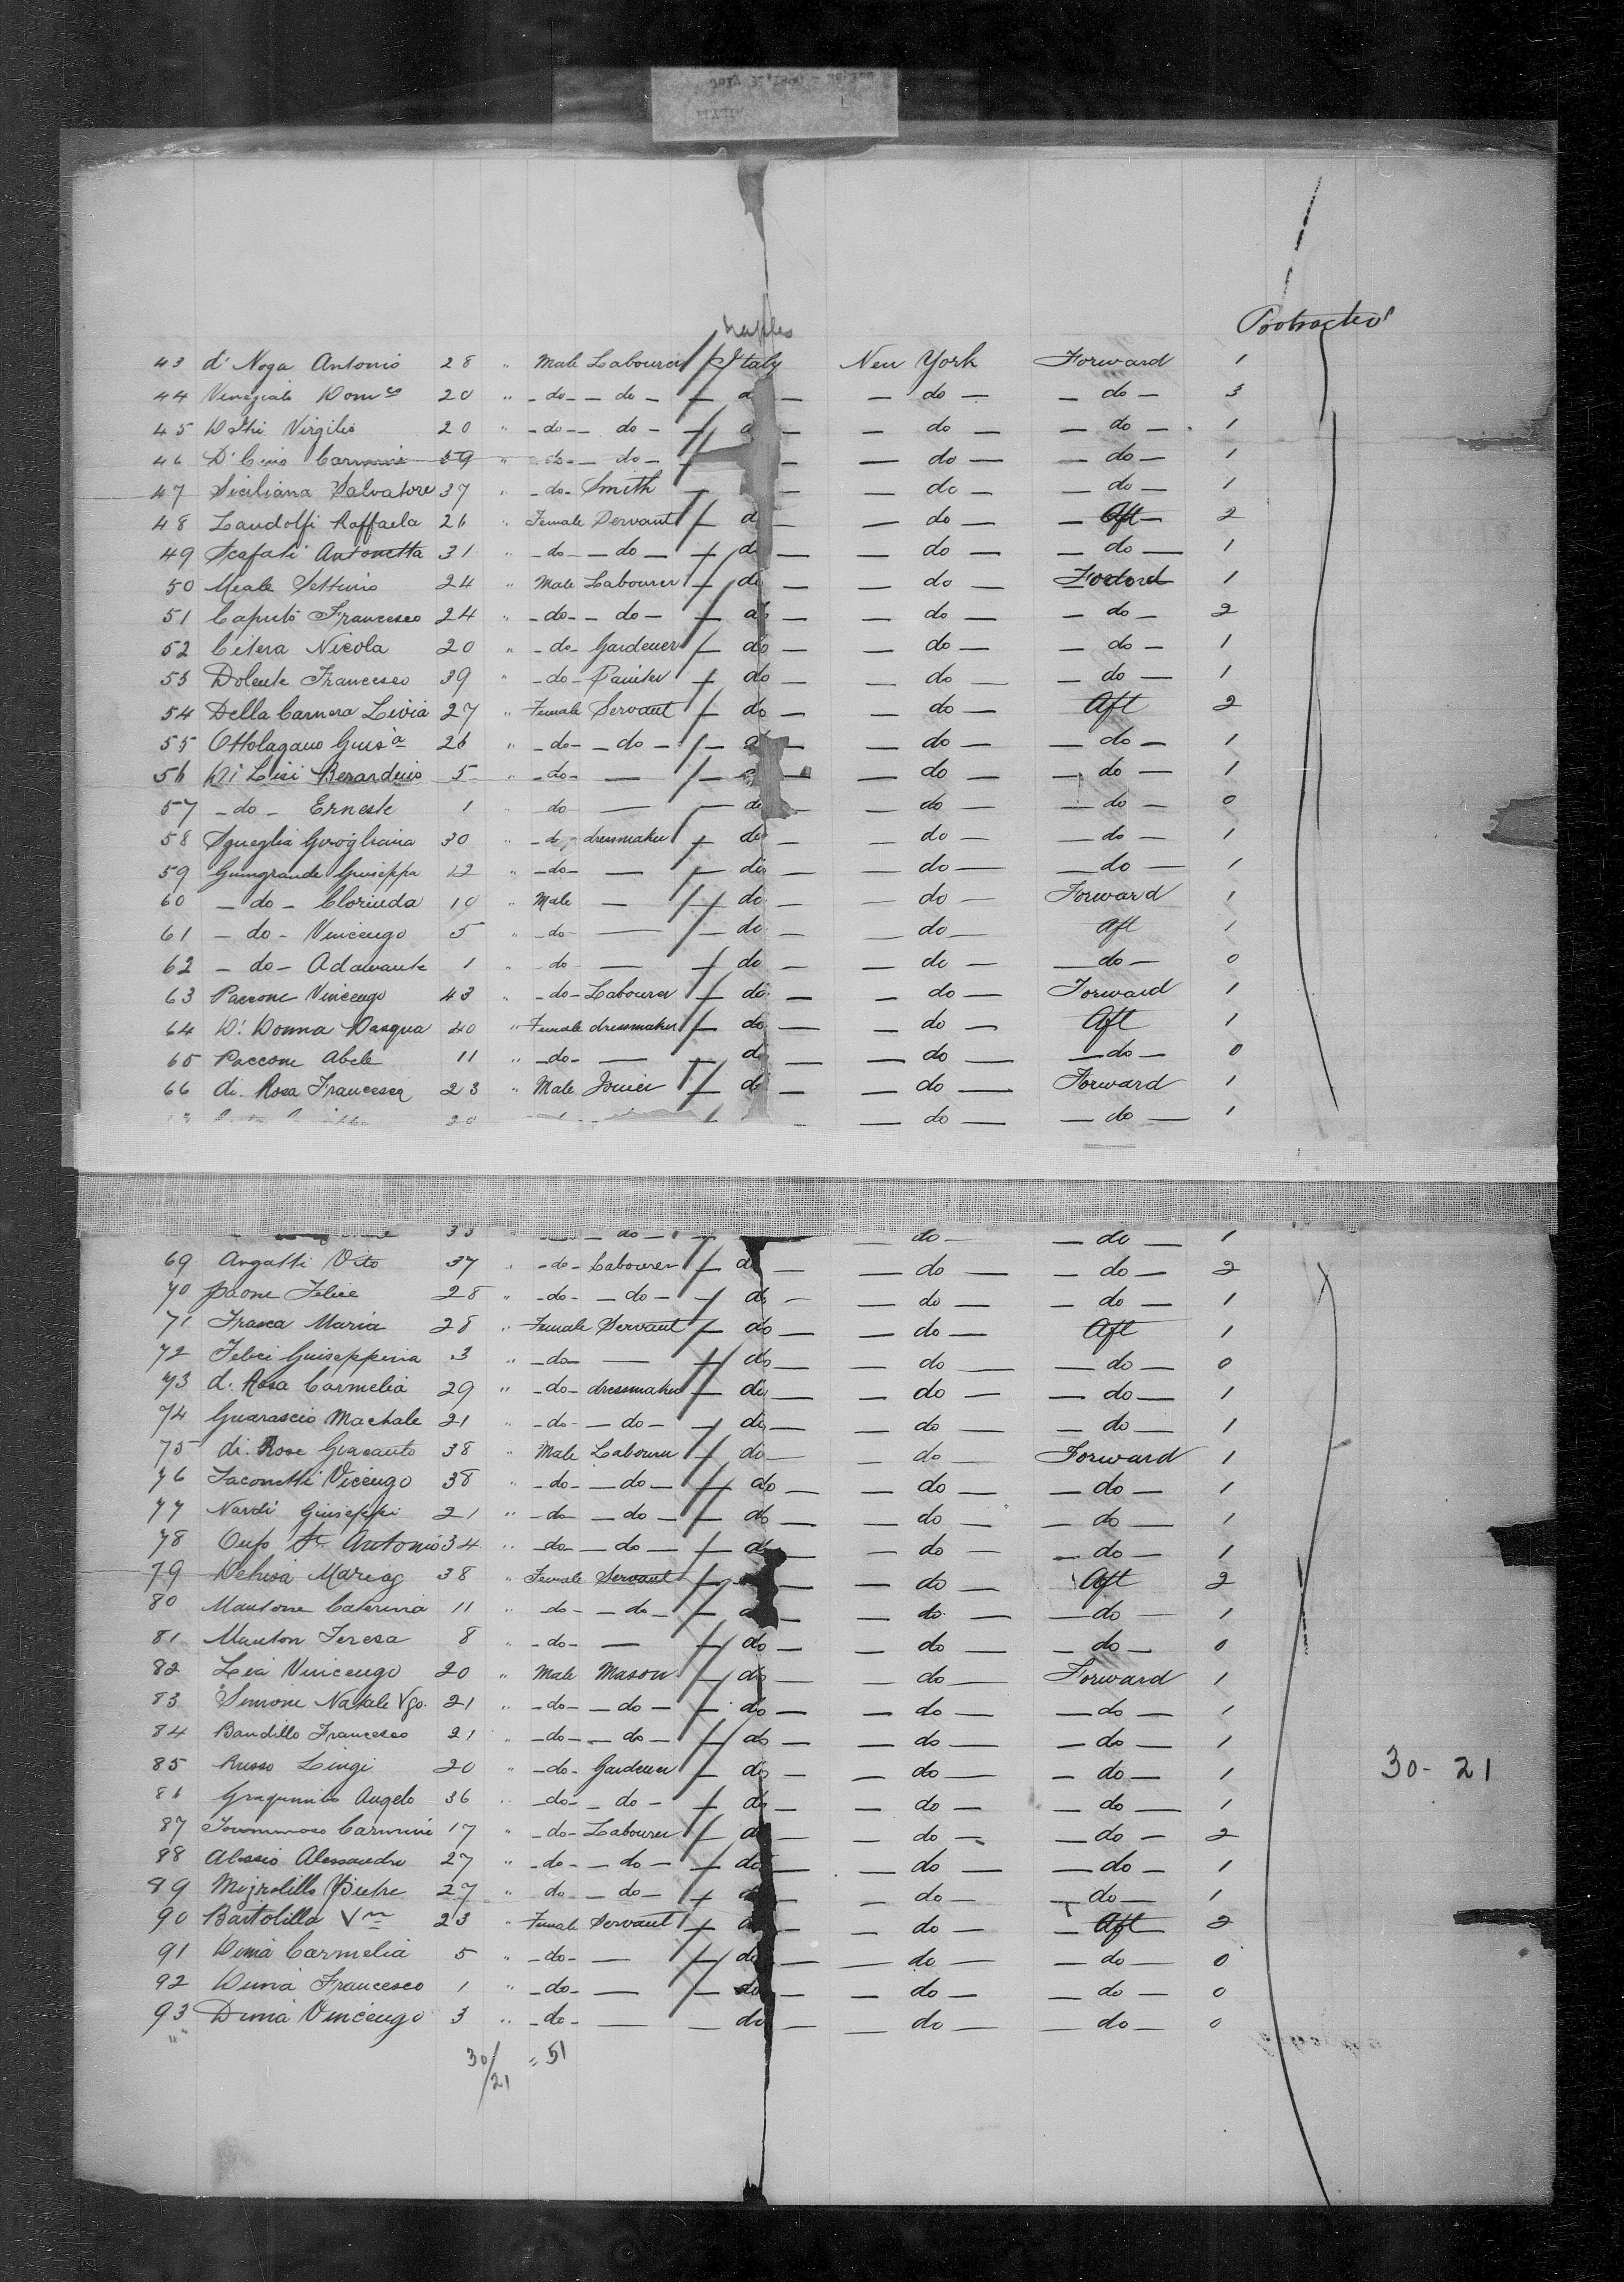 Naples
Protracted
43 d' Noga Antonio 28 " Male Labourer Italy New York Forward 1
44 Veneziale Dom co 20 " - do - - do - - do - - do - - do - 3
45 Virgilio 20 " - do - - do - - do - - do - 1
46 D' Carmine 59 " do - - do - - do - - do - 1
47 Siciliana Salvatore 37 " - do - Smith - - do - - do - 1
48 Landolfi Raffaela 26 " Female Servant - do - - do - - Aft - 2
49 Scafati Antonetta 31 " - do - - do - - do - - do - - do - 1
50 Meale Setturio 24 " Male Labourer - do - - do - 1
51 Caputo Francesco 24 " - do - - do - - do - - do - - do - 2
52 Citera Nicola 20 " - do - Gardener - do - - do - - do - 1
53 Dolente Francesco 39 " - do - Painter - do - - do - - do - 1
54 Della Carnera Livia 27 " Female Servant - do - - do - Aft 2
55 Ottolagano Guis a 26 " - do - - do - - do - - do - - do - 1
56 Di Lisi Berarduio 5 " - do - — - do - - do - 1
57 - do - Erneste 1 " do — - do - do - - do - 0
58 Squeglia 30 " - do - dressmaker - do - - do - - do - 1
59 Guingrande Guiseppa 12 " - do - — - do - - do - - do - 1
60 - do - Clorinda 10 " Male — - do - - do - Forward 1
61 - do - Vincenzo 5 " - do - — - do - - do - Aft 1
62 - do - Adawante 1 " - do — - do - - do - - do - 0
63 Paccone Vincenzo 43 " - do - Labourer - do - - do - Forward 1
64 Di Donna Pasqua 40 " Female dressmaker - do - - do - Aft 1
65 Paccone Abele 11 " - do - — - do - - do - - do - 0
66 di. Rosa Francesca 23 " Male Joiner - do - - do - Forward 1
20 - do - - do - 1
33 - do - - do - - do - 1
69 Angatti Vito 37 " - do - Labourer - do - - do - - do - 2
70 Paone Felice 28 " - do - - do - - do - - do - - do - 1
71 Frasca Maria 28 " Female Servant - do - - do - Aft 1
72 Felici Guiseppina 3 " - do - — - do - - do - - do - 0
73 d. Rosa Carmelia 29 " - do - dressmaker - do - - do - - do - 1
74 Guarascio Machale 21 " - do - - do - - do - - do - - do - 1
75 di. Rose Giacanto 38 " Male Labourer - do - - do - Forward 1
76 Iaconetti Vicenzo 38 " - do - - do - - do - - do - - do - 1
77 Nardi Giuseppi 21 " - do - - do - - do - - do - - do - 1
78 Antonio 34 " - do - - do - - do - - do - - do - 1
79 38 " Female Servant - - do - Aft 2
80 Mantone Caterina 11 " - do - - do - - do - - do - - do - 1
81 Manton Teresa 8 " - do - — - do - - do - - do - 0
82 Leia Vincenzo 20 " Male Mason - do - - do - Forward 1
83 Simone Natale Vgo. 21 " - do - - do - - do - - do - - do - 1
84 Bandillo Francesco 21 " - do - - do - - do - - do - - do - 1
85 Russo Liugi 20 " - do - Gardener - do - - do - - do - 1
30 - 21
86 Angelo 36 " - do - - do - - do - - do - - do - 1
87 Tommaso Carmini 17 " - do - Labourer - do - - do - - do - 2
88 Alessio Alessandro 27 " - do - - do - - do - - do - - do - 1
89 27 " do - - do - - do - - do - - do - 1
90 Bartolilla V na 23 " Female Servant - do - - do - - Aft - 2
91 Duma Carmelia 5 " - do - — - do - - do - - do - 0
92 Duma Francesco 1 " - do - — - do - - do - - do - 0
93 Duma Vincenzo 3 " - do - — - do - - do - - do - 0
30/21 = 51